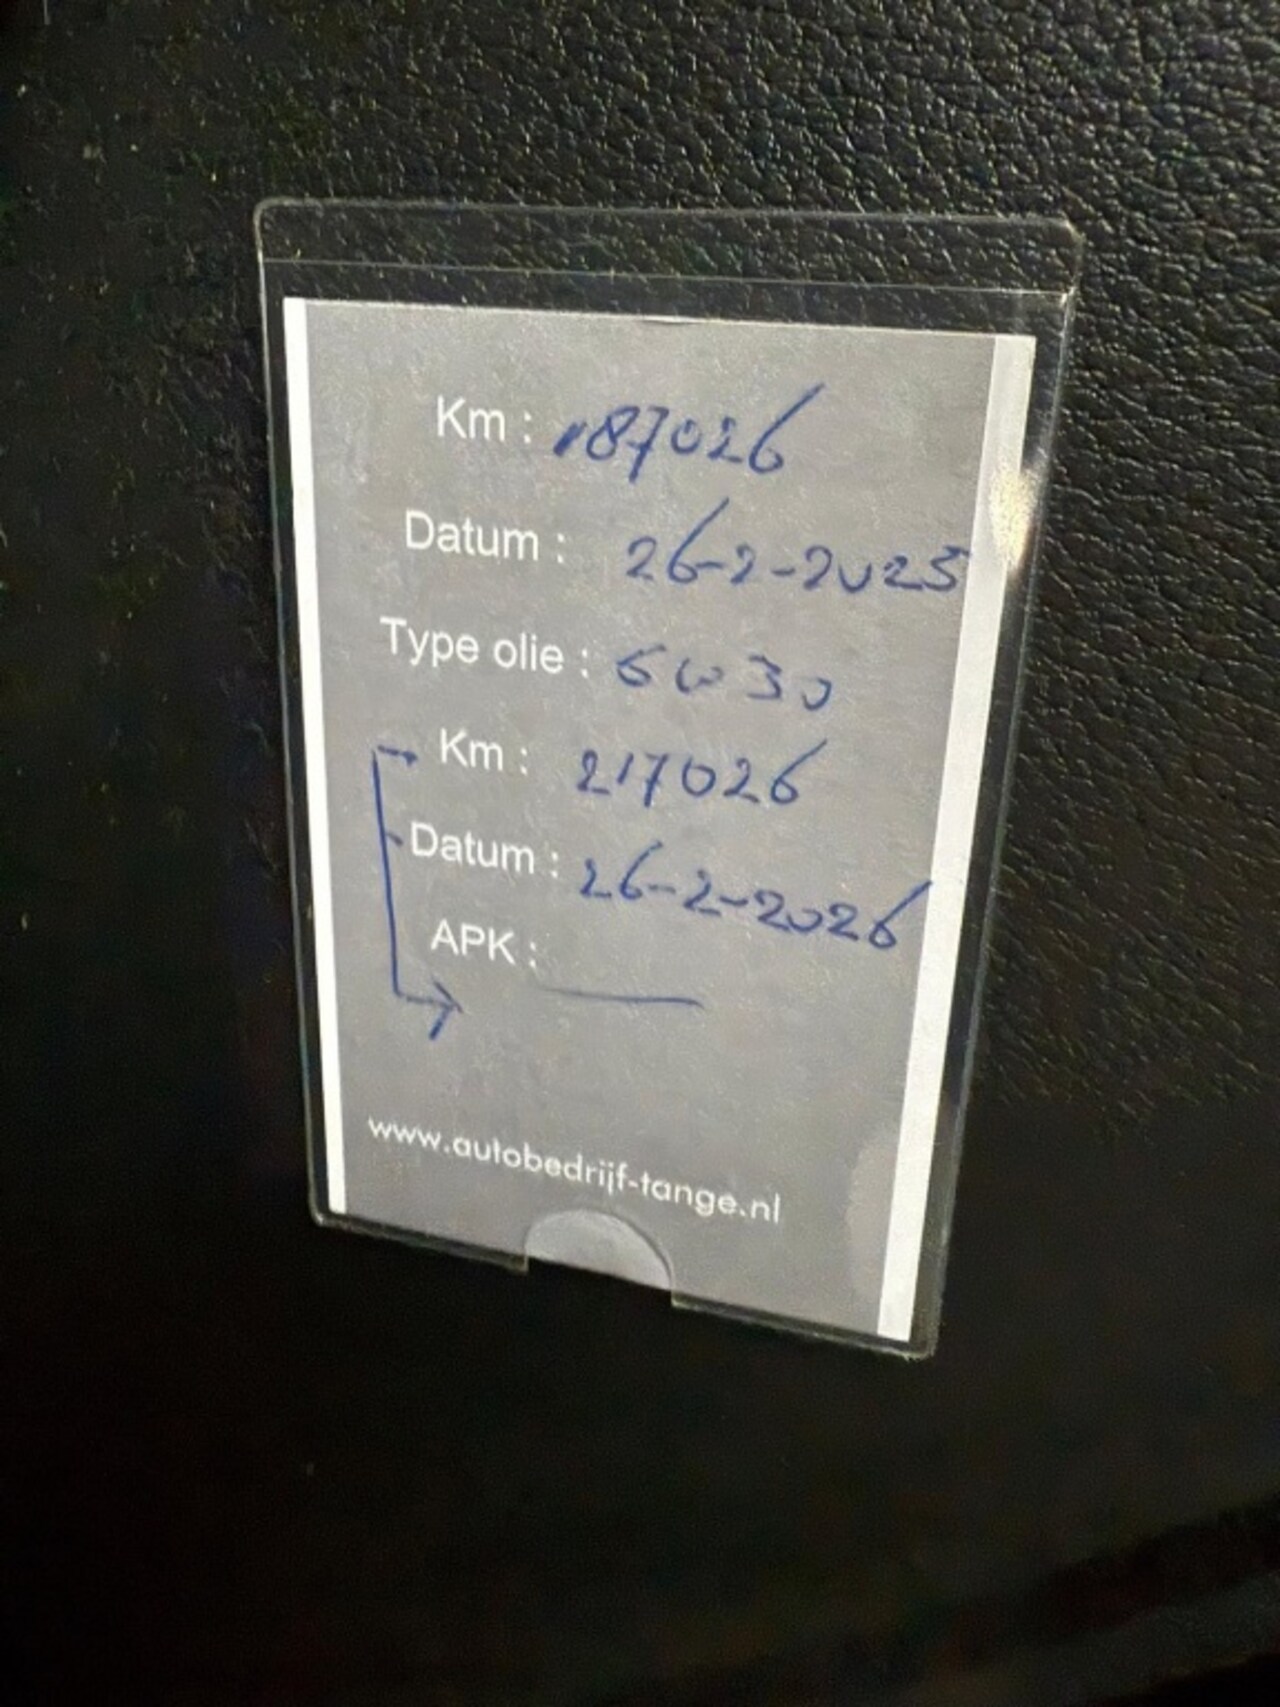 Km : 187026
Datum : 26-2-2025
Type olie : 5w30
Km : 217026
Datum : 26-2-2026
APK : —
www.autobedrijf-tange.nl